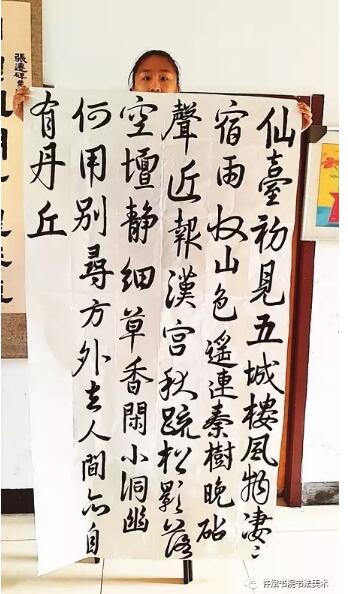 仙臺初見五城樓風物凄〻
宿雨收山色遙連秦樹晚砧
聲近報漢宮秋疏松影落
空壇静細草香閑小洞幽
何用别尋方外去人間亦自
有丹丘
張遷碑
书院书法美术